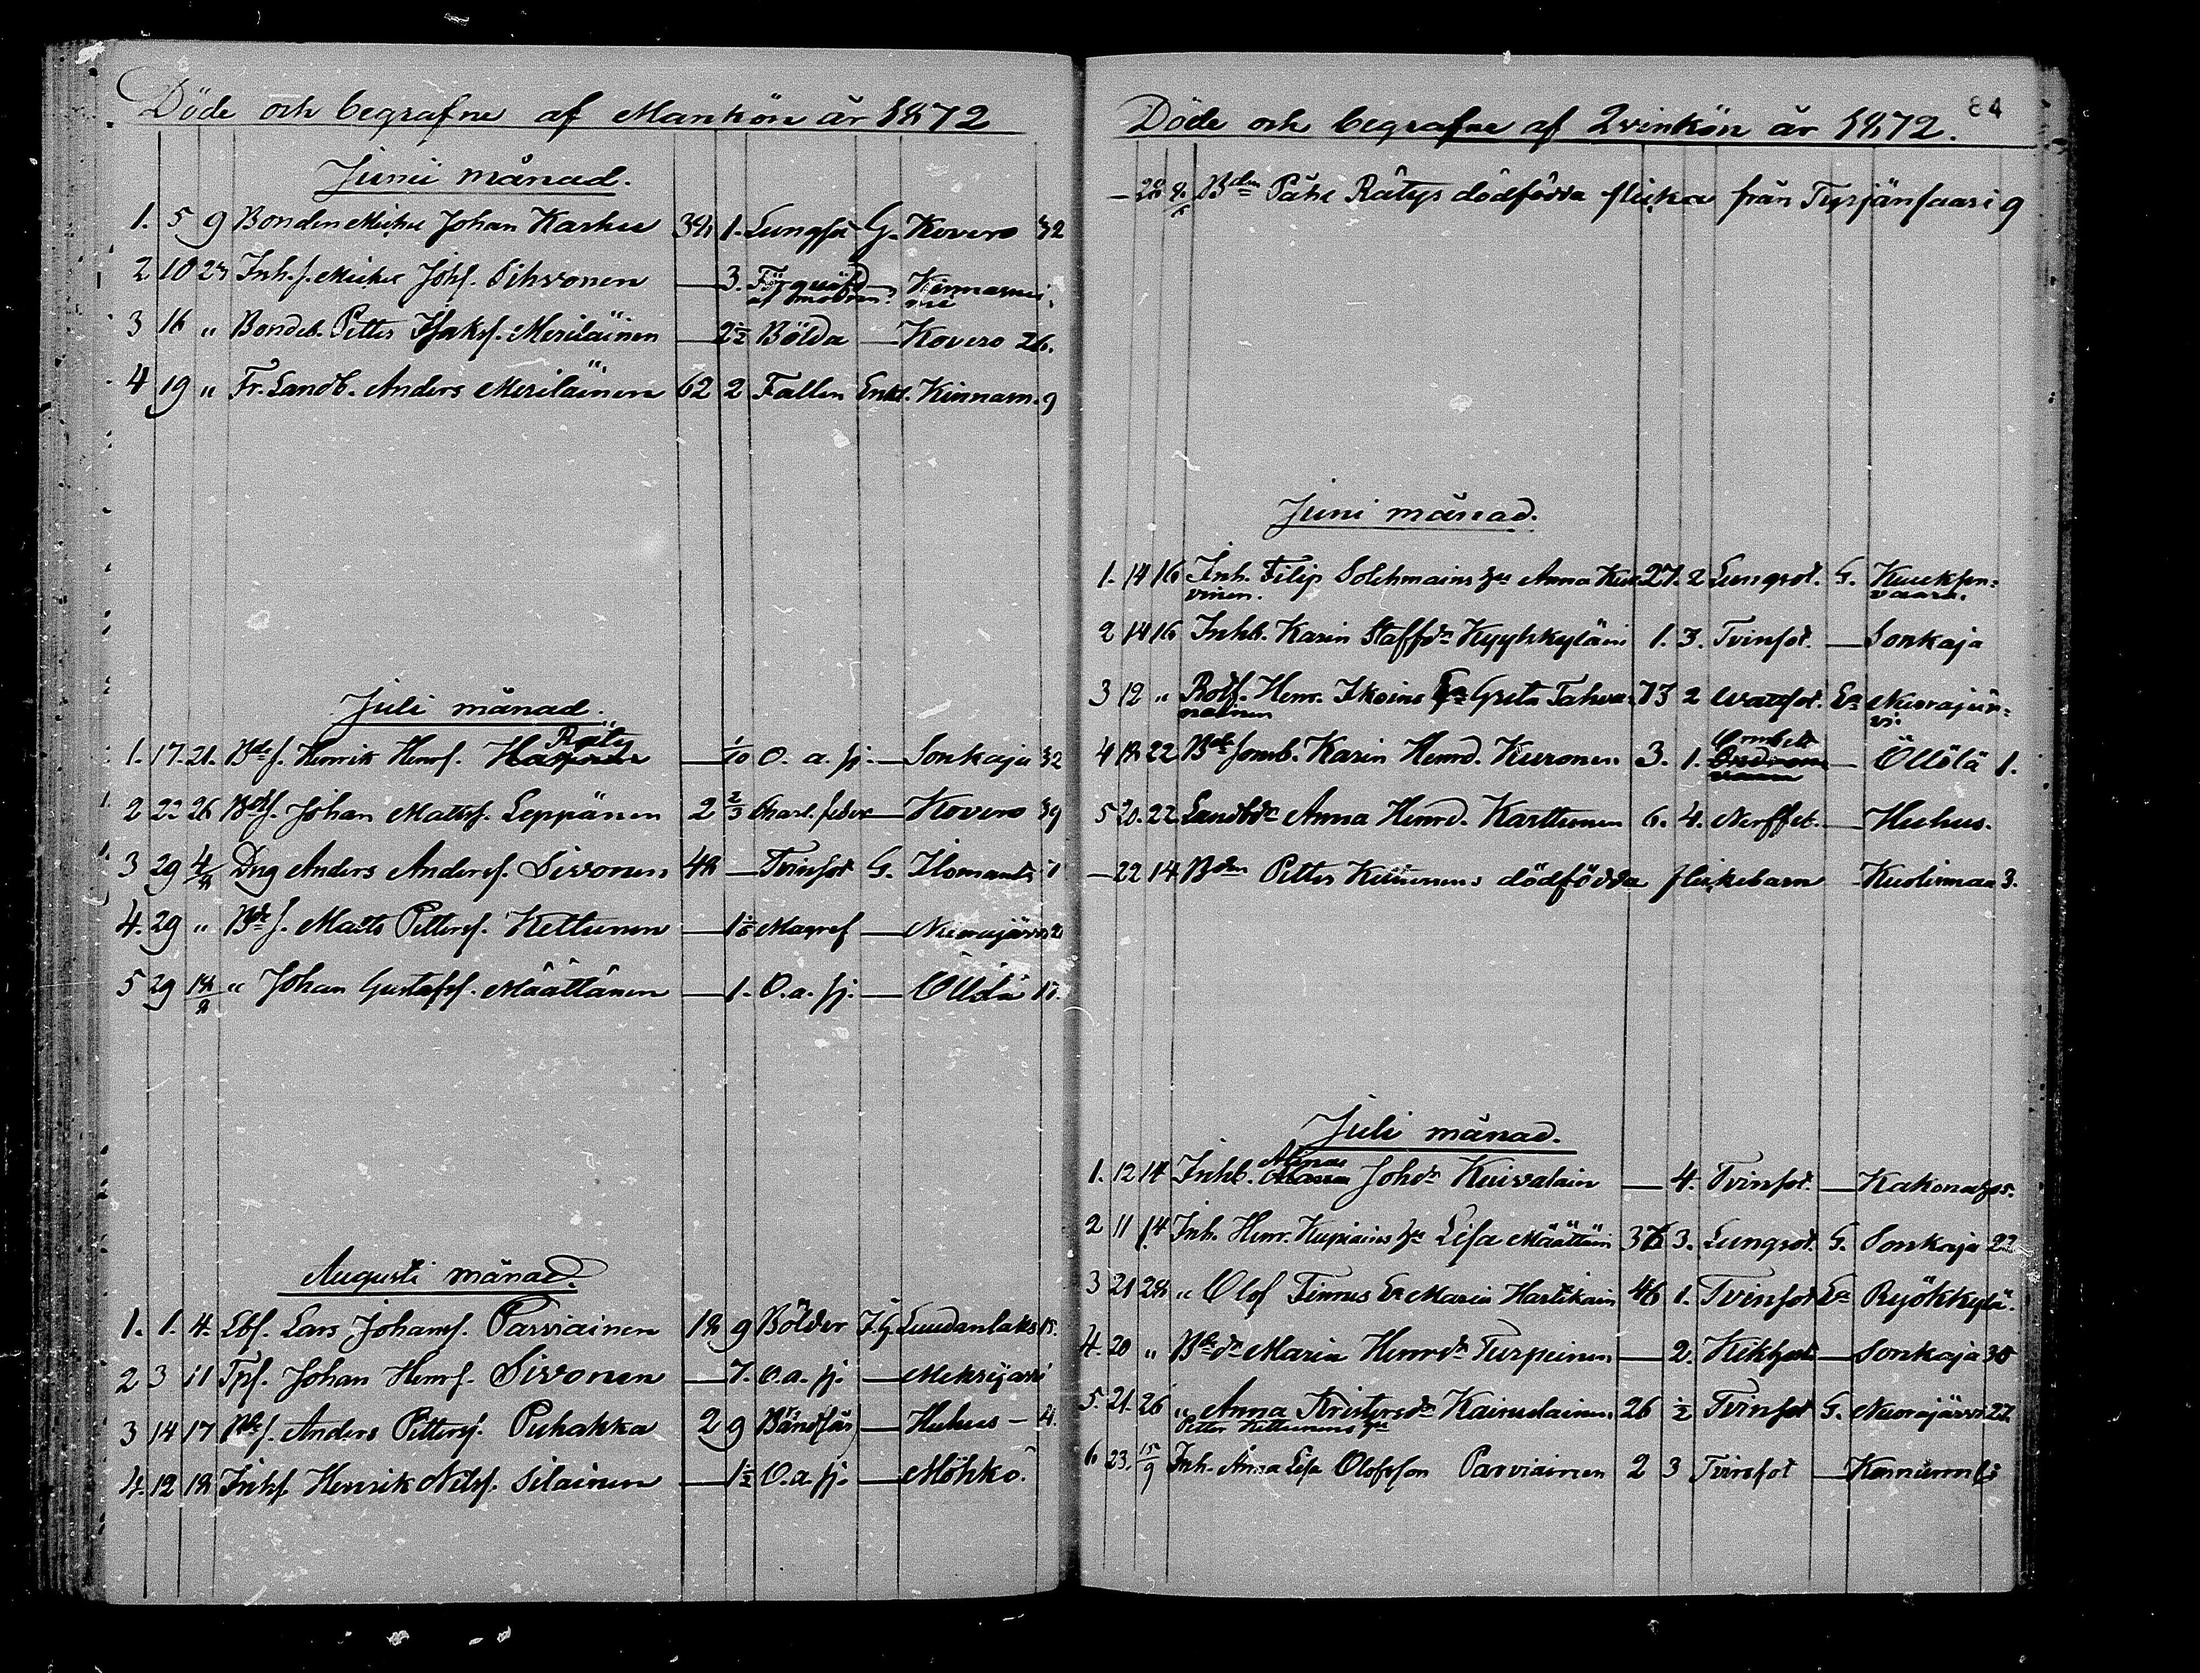 Döde och begrafne af Mankön år 1872
Junii månad.
1. 5 9 Bonden Michel Johan Karhu 38 1. Lungsot G. Kovero 32
2 10 23 Inh. s. Mickel Johs. Sihvonen — 3. Förqväfd af modren — Kinnasni
3 16 " Bondes. Petter Isaks. Meriläinen — 2½ Bölda — Kovero 26.
4 19 " Fr. Landb. Anders Meriläinen 62 2 Fallen Enkl. Kinnasn. 9
Juli månad.
Räty
1. 17. 21. Bdes. Henrik Henrs. — 1/10 O. a. sj. — Sonkaja 32
2 22 26 Bdes. Johan Matss. Leppänen 2 2/3 Skarl. feber — Kovero 39
3 29 4/8 Dng Anders Anderss. Sivonen 48 — Tvinsot G. Ilomants 1
4. 29 " Bdes. Matts Petters. Kettunen — Magref — Nuorajärvi 2
5 29 18/8 " Johan Gustafs. Määttänen — 1. O. a. sj. — Öllölä 17.
Augusti månad.
1. 1. 4. Ebs. Lars Johans. Parviainen 18 9 Bölder I.G. Luudanlaks 15.
2 3 11 Tps. Johan Henrs. Sivonen — 7. O. a. sj. — Mekrijärvi
3 14 17 Bdes. Anders Petters. Puhakka 2 9 Brändsår — Huhus — 4.
4. 12 18 Inhs. Henrik Nils. Silainen — 1½ O. a. sj. — Möhkö.
84
Döde och begrafne af Qvinkön år 1872.
— 28 8/5 Bdens Påhl Rätys dödfödda flicka från Tyrjänsaari 9
Juni månad.
1. 14 16 Inh. Filip Solehmains hu Anna Kur- 27. 2 Lungsot. G. Kuuksen-
vinen. vaara.
2 14 16 Inhb. Karin Staffdr Kyyhkyläin 1. 3. Tvinsot. — Sonkaja
3 12 " Rotf. Henr. Ikoins Ea Greta Tahva- 73 2 Vattsot. Ea Nuorajär-
nainen vi
4 18 22 Bde sonb. Karin Henrd. Kuronen 3. 1. — Öllölä 1.
5 20. 22 Landbdr Anna Henrd. Karttunen 6. 4. Nerffeb. — Huhus.
— 22 14 Bden Petter dödfödda flickebarn — Kuolismaa 3.
Juli månad.
1. 12 14 Inhb. Johdr Kuivalain — 4. Tvinsot. — Kakonah
2 11 14 Inh. Henr. Kupiains hu Lisa Määttäin 36 3. Lungsot. G. Sonkaja 22
3 21 28 " Olof Tinnus Ea Maria Hartikain 46 1. Tvinsot Ea Ryökkylä.
4. 20 " Bdedr Maria Henrdr Turpeinen — 2. Kikhosta — Sonkaja 38
5. 21. 26 " Anna Kristersdr Kainulainen 26 ½ Tvinsot G. Nuorajärvi 22
Petter Kettunens hu
6 23. 15/9 Inh. Anna Lisa Olofsson Parviainen 2 3 Tvinsot —